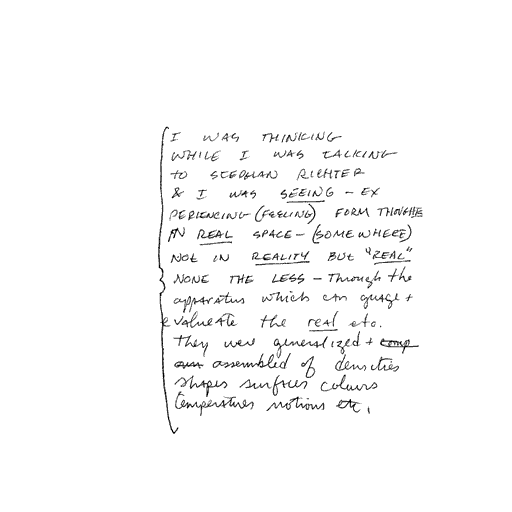 I WAS THINKING
WHILE I WAS TALKING
TO STEPHAN RICHTER
& I WAS SEEING – EX
PERIENCING (FEELING) FORM THOUGHTS
IN REAL SPACE – (SOMEWHERE)
NOT IN REALITY BUT "REAL"
NONE THE LESS – Through the
apparatus which can guage +
evalueate the real etc.
they were generalized + comp
assembled of densities
shapes surfaces colours
temperatures motions etc.